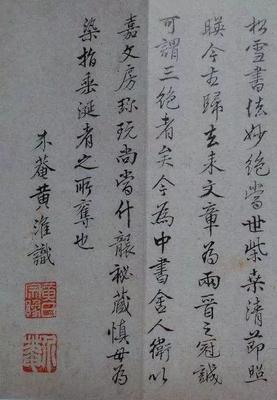 松雪書法妙絕當世柴桑清節照
暎今古歸去来文章為兩晉之冠誠
可謂三絕者矣今為中書舍人衛以
嘉文房珎玩尚當什襲秘藏慎毋為
染指垂涎者之所奪也
木菴黄淮識